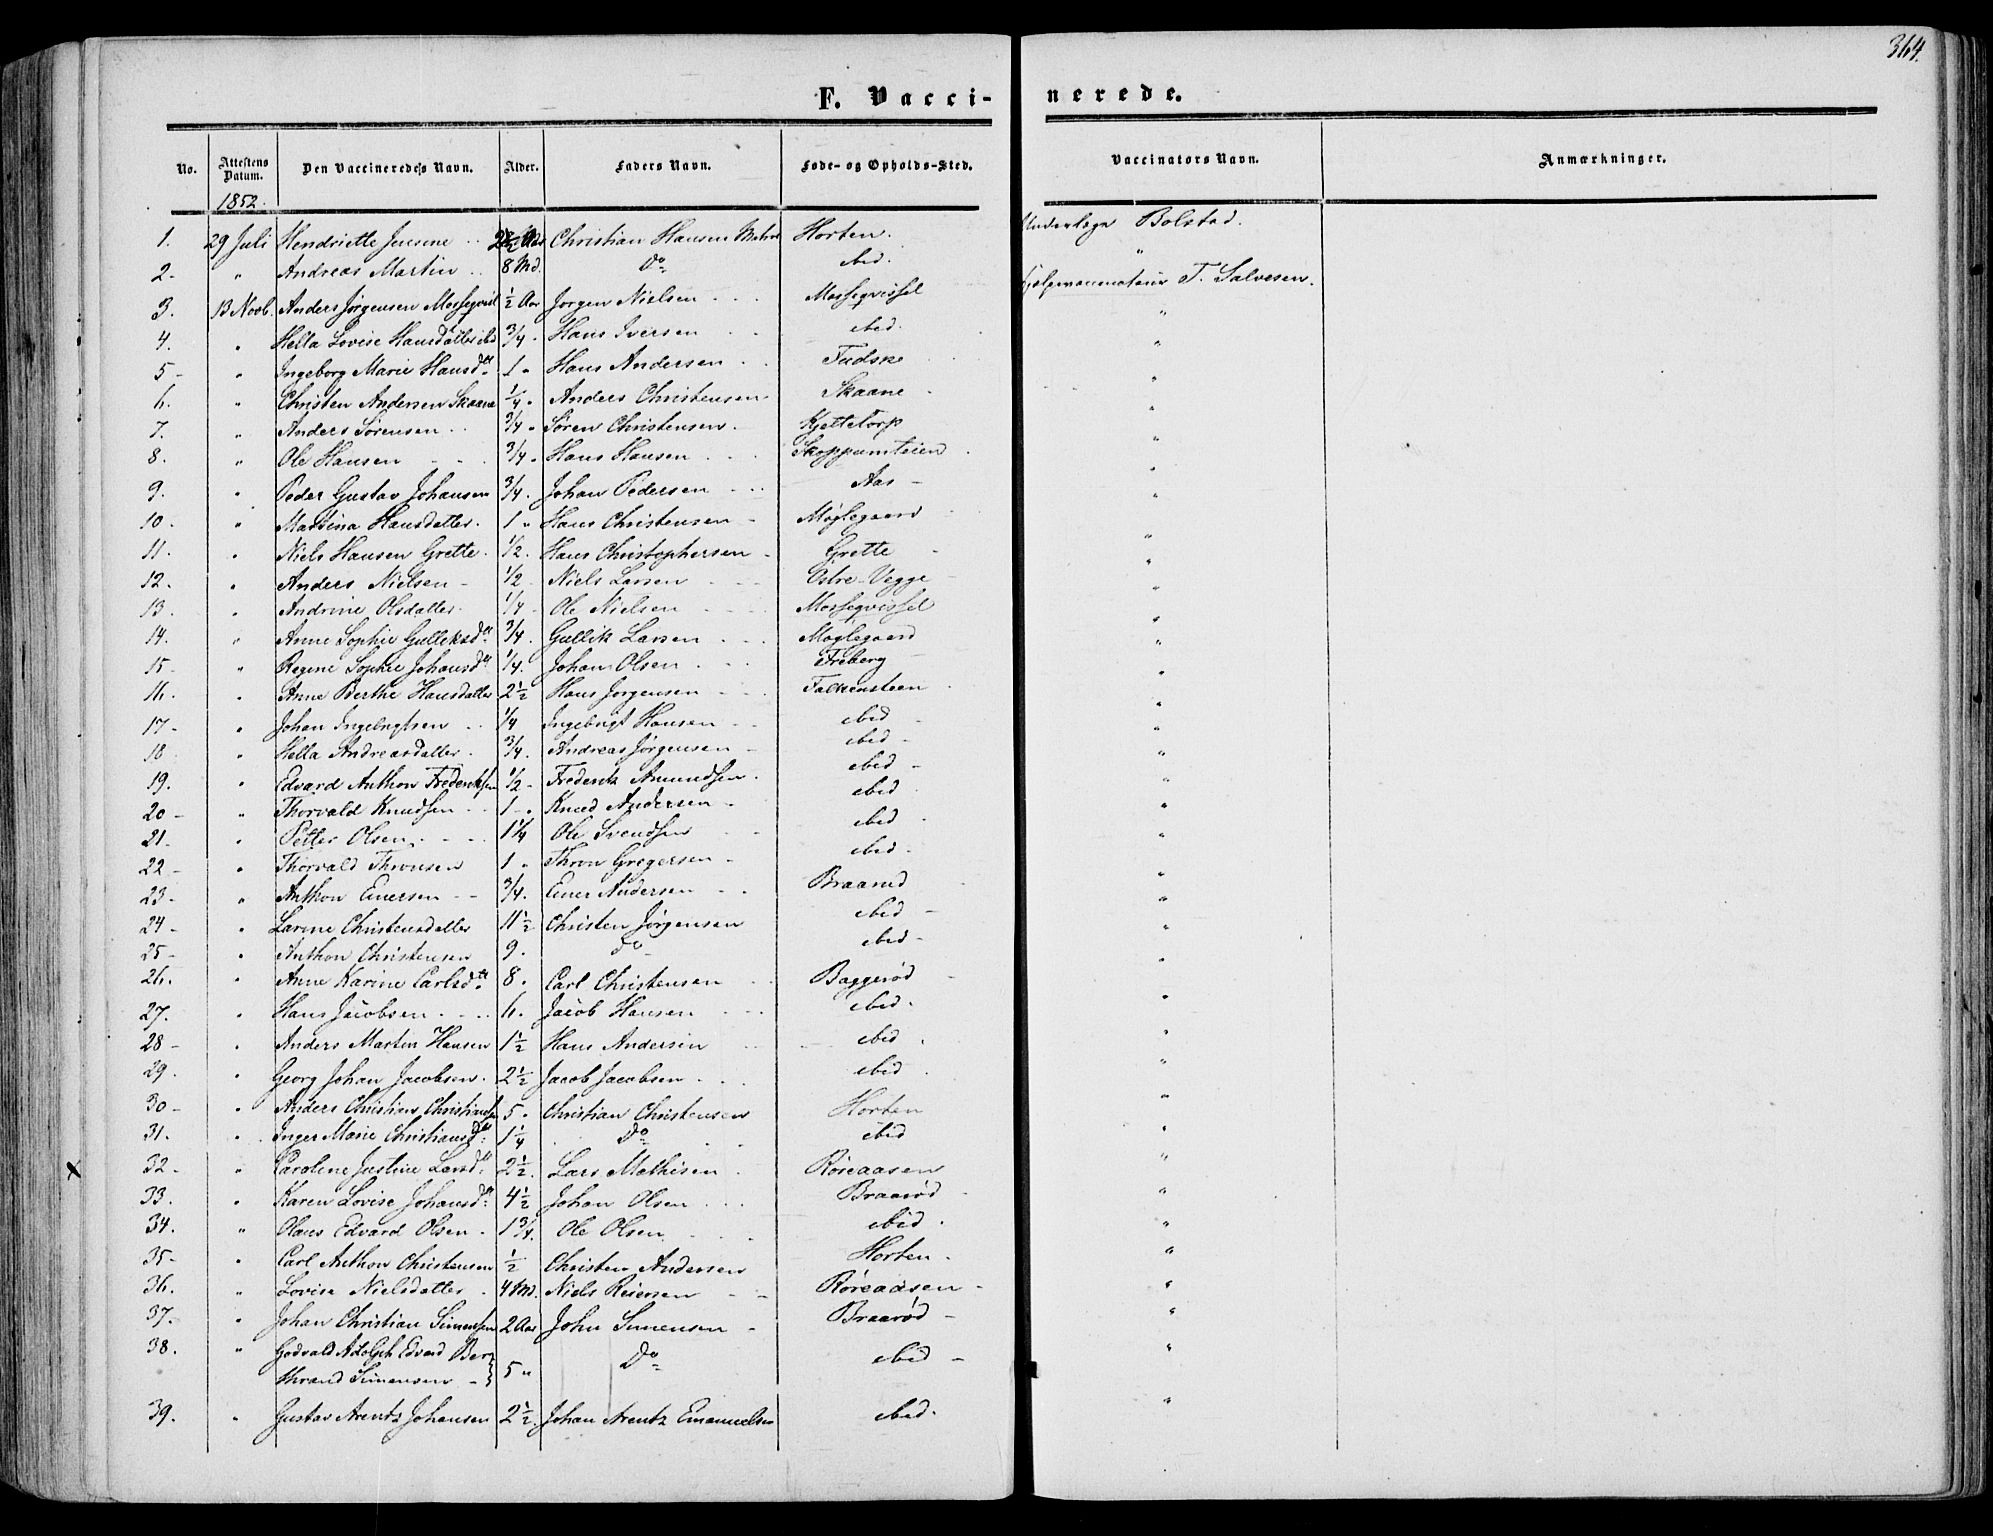 364.
F. Vacci-nerede.
No. Attestens Datum. Den Vaccineredes Navn. Alder. Faders Navn. Føde- og Opholds-Sted. Vaccinators Navn. Anmærkninger.
1852.
1. 29 Juli Hendriette Jensine 2½ Aar Christian Hansen Horten. Underlæge Bolstad.
2- " Andreas Martin 8 Md. Do ibid. "
3. 13 Novb. Anders Jørgensen Mosseqvist ½ Aar Jørgen Nielsen Mosseqvissel Hjelpevaccinateur T. Salvesen.
4. " Hella Lovise Hansdatter ibid 3/4 Hans Iversen ibid. "
5- " Ingeborg Marie Hansdr 1 " Hans Andersen "
6. " Christen Andersen Skaane 1/4 " Anders Christensen Skaane "
7. " Anders Sørensen 3/4 " Søren Christensen. Kjettetorp "
8. " Ole Hansen 3/4 " Hans Hansen Skoppumteien "
9. " Peder Gustav Johansen 3/4 . Johan Pedersen Aas "
10. " Martina Hansdatter. 1 " Hans Christensen Møglegaard "
11. " Niels Hansen Grette. 1/2 . Hans Christophersen Grette "
12. " Anders Nielsen 1/2 Niels Larsen Østre-Vegge "
13. " Andrine Olsdatter 1/4 Ole Nielsen Mosseqvissel "
14. " Anne Sophie Gulleksdr 3/4. Gullik Larsen Møglegaard "
15- " Regine Sophie Johansdr 1/4. Johan Olsen Freberg "
16. " Anne Berthe Hansdatter 2½ Hans Jørgensen Falkensteen "
17- " Johan Ingebrigtsen 1/4 Ingebrigt Hansen ibid "
18 " Hella Andreasdatter 3/4. Andreas Jørgensen ibid "
19. " Edvard Anthon Frederiksen 1/2 Frederik Amundsen ibid "
20- " Thorvald Knudsen 1 " Knud Andersen ibid "
21- " Petter Olsen 1¼ Ole Svendsen ibid "
22- " Thorvald Thronsen 1 " Thron Gregersen ibid "
23- " Anthon Enersen 3/4. Ener Andersen "
24- " Larine Christensdatter 11½ Christen Jørgensen ibid "
25- " Anthon Christensen 9. Do ibid "
26. " Anne Karine Carlsdr 8. Carl Christensen Baggerød "
27. " Hans Jacobsen 6. Jacob Hansen ibid "
28- " Anders Martin Hansen 1½ Hans Andersen ibid "
29. " Georg Johan Jacobsen 2½ Jacob Jacobsen ibid "
30- " Anders Christian Christiansen 5 . Christian Christensen Horten "
31. " Inger Marie Christiansdr 1¼ Do ibid "
32- " Caroline Justine Larsdr 2½ . Lars Mathisen Røreaasen "
33. " Karen Lovise Johansdr 4½ Johan Olsen Braarød "
34. " Olaus Edvard Olsen 1¾. Ole Olsen ibid "
35- " Carl Anthon Christensen ½ Christen Andersen Horten "
36. " Lovise Nielsdatter 4 Md. Niels Reiersen Røreaasen "
37. " Johan Christian Simensen 2 Aar John Simensen Braarød "
38. " Godvald Adolph Edvard Ber-
thrand Simensen 5 " Do ibid "
39. " Gustav Arentz Johansen 2½. Johan Arentz Emanuelsen ibid. "